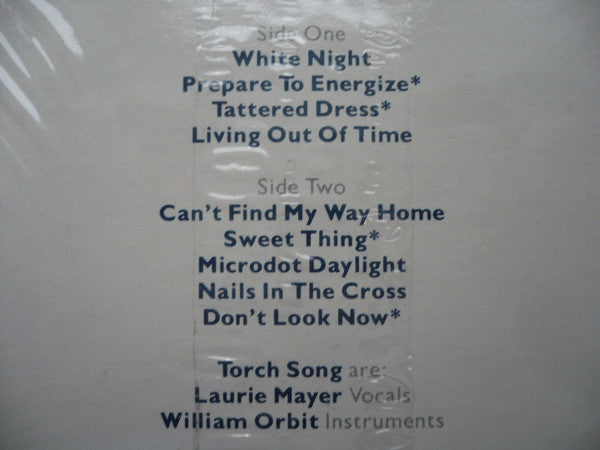 Side One
White Night
Prepare To Energize*
Tattered Dress*
Living Out Of Time
Side Two
Can't Find My Way Home
Sweet Thing*
Microdot Daylight
Nails In The Cross
Don't Look Now*
Torch Song are:
Laurie Mayer Vocals
William Orbit Instruments